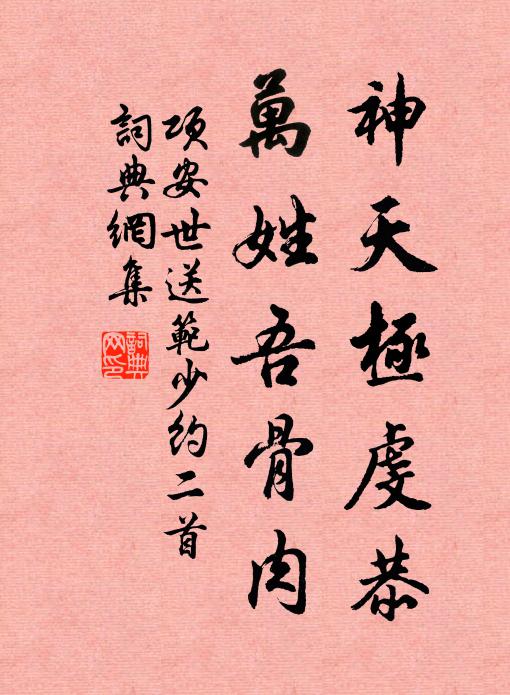 神天極虔恭
萬姓吾骨肉
項安世送範少約二首
詞典網集
詞典网印